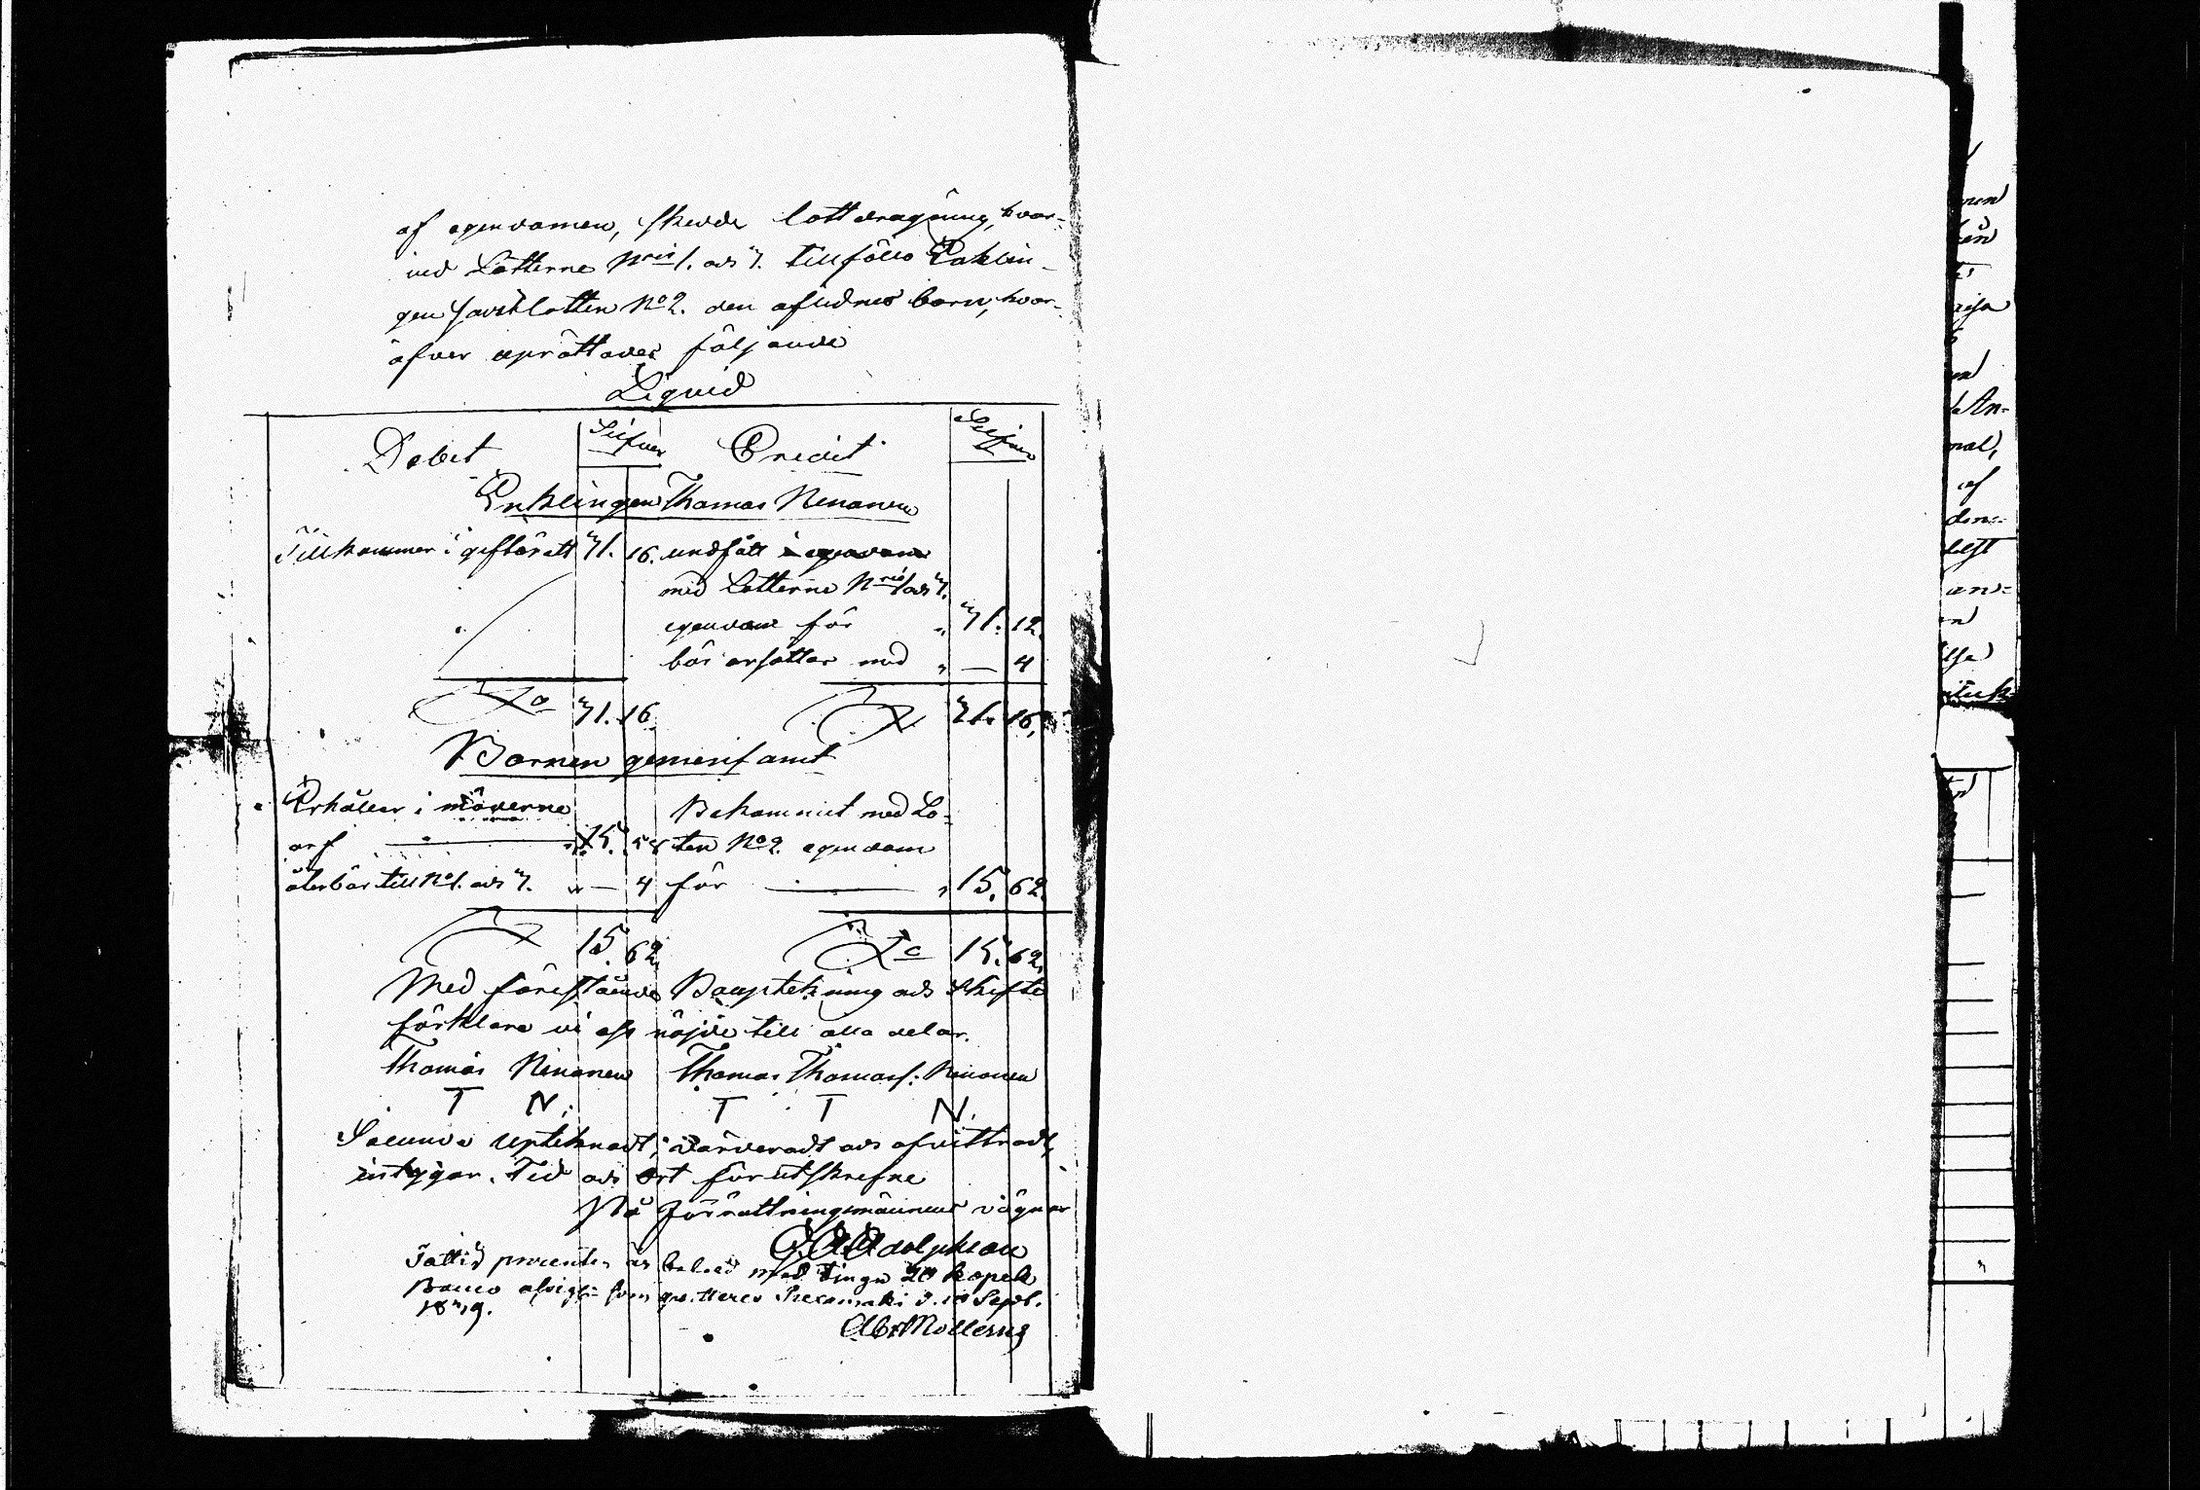 af egendomen, skedde lottdragning, hvar-
vid Lotterne Nris 1. och 3. tillföllo Enklin-
gen samt lotten No 2. den aflidnes barn, hvar-
öfver uprättades följande
Liquid
Debet Silfver Credit Silfver
Enklingen Thomas Ninonen
Tillkommer i giftorätt 31. 16. undfått
med Lotterne Nris 1 och 3.
egendom för " 31. 12.
bör ersättas med " — 4
31. 16. 31. 16.
Barnen gemensamt
Erhåller i möderne Bekommit med Lo-
arf " 15. 58 ten No 2. egendom
återbär till No 1. och 3. " — 4 för " 15. 62.
15. 62. 15. 62.
Med förestående Bouptekning och Skifte
förklara vi oss nöjde till alla delar.
Thomas Ninonen Thomas Thomass: Ninonen
T N. T T N.
Sålunda uptecknadt, värderadt och afvittradt,
intygar. Tid och Ort förutskrefne
På Förrättningsmännens vägnar
Adolphson
Fattig procenten är betald med Tjugu 20 kopek
som qvitteras d. 10 Sept.